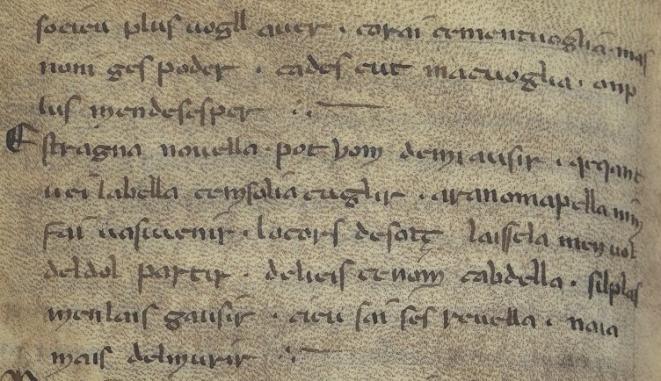 socieu plus uogll auer · corai cementuoglia · mas
nom ges poder · cades cut macuoglia · onp
lus mendesesper
Estragna nouella · pot hom demi ausir · qeqant
uei labella cemsolia cuglir · aranomapella nim
fai uasiuenir · locors desotz laissela men uol
deldol partir · delieis cenom cabdella · silplas
menlais gausir · cieu sai ses reuella · naia
mais delmurir